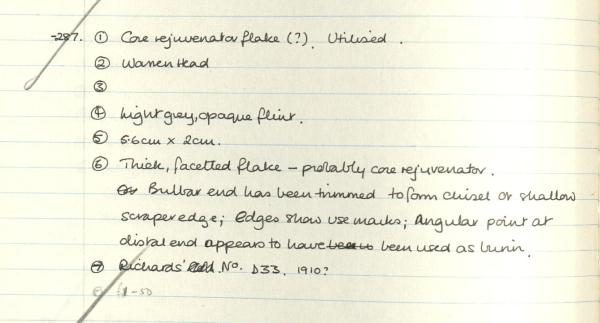 287. ① Core rejuvenator flake (?). Utilised.
② Warren Head
③
④ Light grey, opaque flint.
⑤ 5.6cm × 2cm.
⑥ Thick, facetted flake – probably core rejuvenator.
Bulbar end has been trimmed to form chisel or shallow
scraper edge; Edges show use marks; Angular point at
distal end appears to have been used as burin.
⑦ Richards' No. D33. 1910?
⑧ £1-50